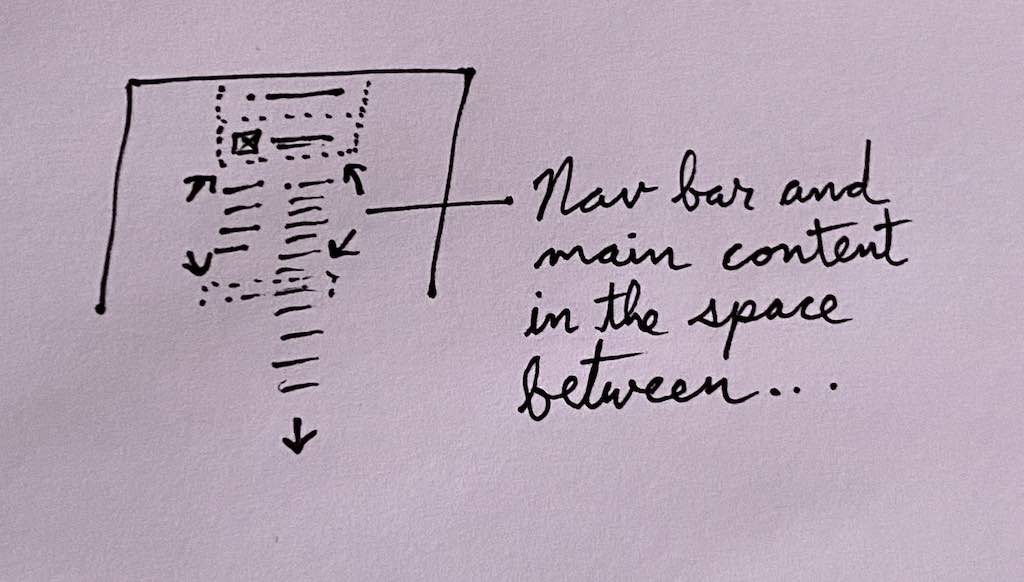 Nav bar and
main content
in the space
between...